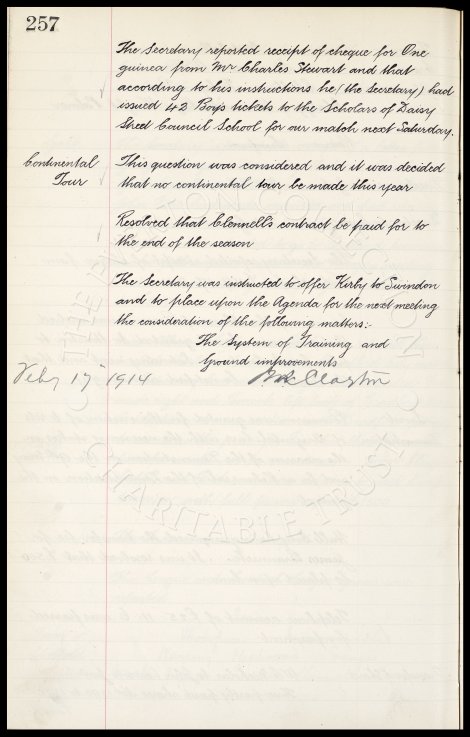 257
The Secretary reported receipt of cheque for One
guinea from Mr Charles Stewart and that
according to his instructions he (the Secretary) had
issued 42 Boys tickets to the Scholars of Daisy
Street Council School for our match next Saturday.
Continental
Tour
This question was considered and it was decided
that no continental tour be made this year
Resolved that Clennell's contract be paid for to
the end of the season
The Secretary was instructed to offer Kirby to Swindon
and to place upon the Agenda for the next meeting
the consideration of the following matters:-
The System of Training and
Ground improvements
Feby 17th 1914
CHARITABLE TRUST